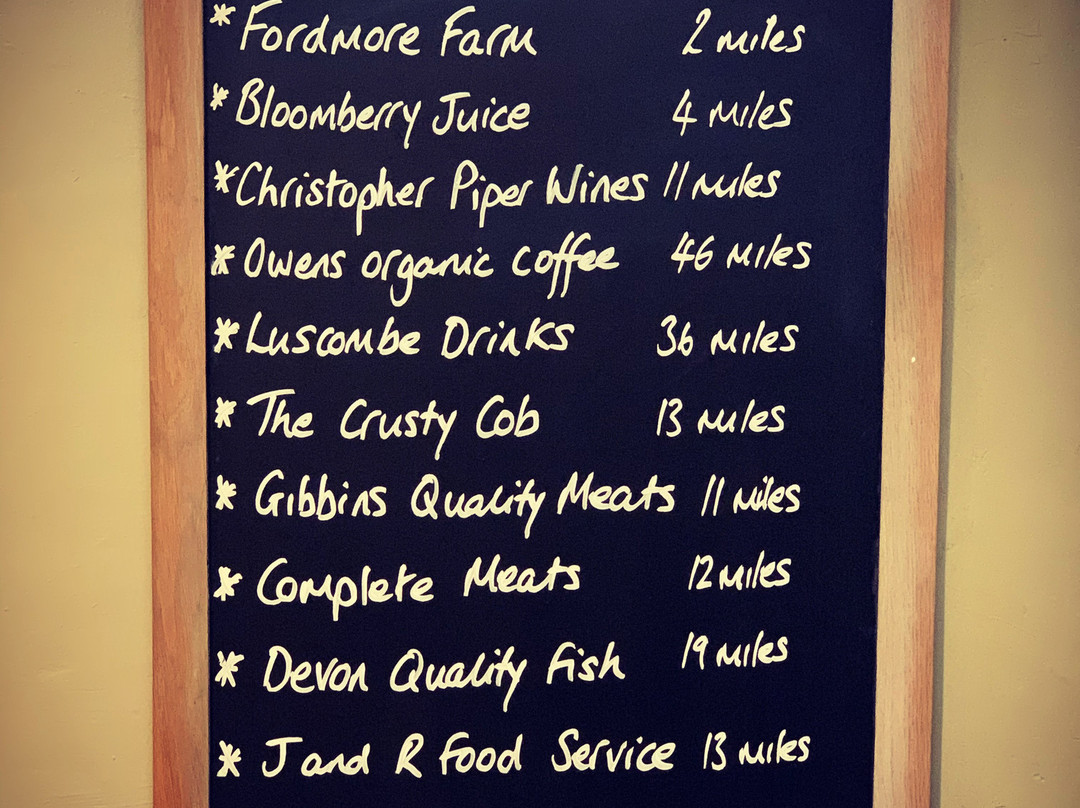 * Fordmore Farm 2 miles
* Bloomberry Juice 4 miles
* Christopher Piper Wines 11 miles
* Owens organic coffee 46 miles
* Luscombe Drinks 36 miles
* The Crusty Cob 13 miles
* Gibbins Quality Meats 11 miles
* Complete Meats 12 miles
* Devon Quality Fish 19 miles
* J and R Food Service 13 miles